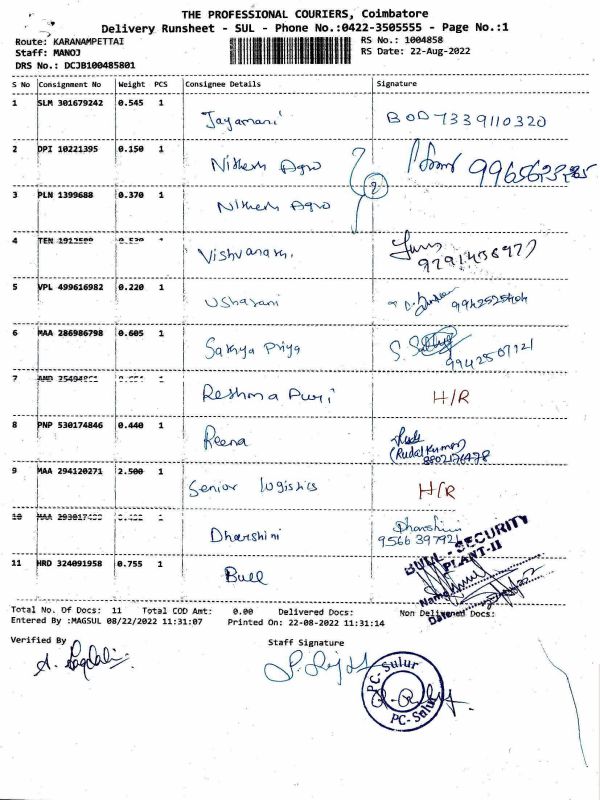 THE PROFESSIONAL COURIERS, Coimbatore
Delivery Runsheet - SUL - Phone No.:0422-3505555 - Page No.:1
Route: KARANAMPETTAI RS No.: 1004858
Staff: MANOJ RS Date: 22-Aug-2022
DRS No.: DCJB100485801
S No Consignment No Weight PCS Consignee Details Signature
1 SLM 301679242 0.545 1 Jayamani BOD 7339110320
2 DPI 10221395 0.150 1 Nithesh Agro
2
3 PLN 1399688 0.370 1 Nithesh Agro
4 TEN 1 Vishvanath.
5 VPL 499616982 0.220 1 Ushasani 9942525404
6 MAA 286986798 0.605 1 Sathya Priya S. 9942507121
7 AMD 1 Reshma Puri H/R
8 PNP 530174846 0.440 1 Reena
(Rudal Kumar)
9 MAA 294120271 2.500 1 Senior logistics H/R
10 MAA 1 Dharshini Dharshini
11 HRD 324091958 0.755 1 Bull
BULL - SECURITY
PLANT-II
Name
Date
Total No. Of Docs: 11 Total COD Amt: 0.00 Delivered Docs: Non Delivered Docs:
Entered By :MAGSUL 08/22/2022 11:31:07 Printed On: 22-08-2022 11:31:14
Verified By Staff Signature
PC-Sulur
PC-Sulur